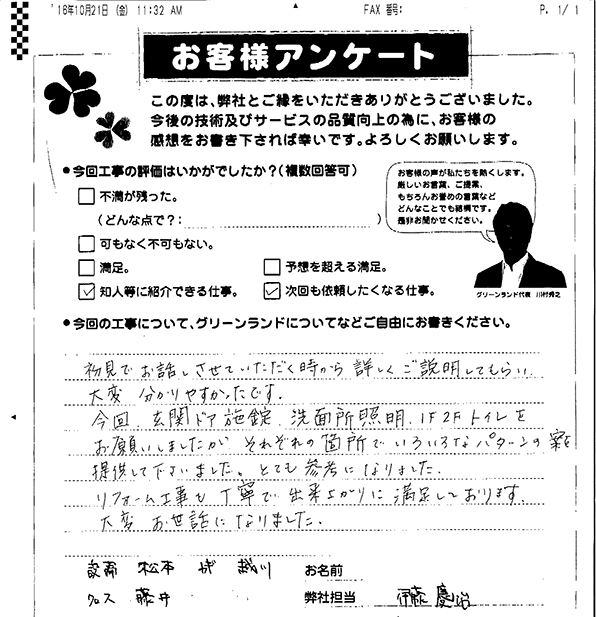 '16年10月21日 (金) 11:32 AM FAX 番号: P. 1/ 1
お客様アンケート
この度は、弊社とご縁をいただきありがとうございました。
今後の技術及びサービスの品質向上の為に、お客様の
感想をお書き下されば幸いです。よろしくお願いします。
●今回工事の評価はいかがでしたか?(複数回答可)
お客様の声が私たちを熱くします。
厳しいお言葉、ご提案、
もちろんお誉めの言葉など
どんなことでも結構です。
是非お聞かせください。
不満が残った。
(どんな点で?: )
可もなく不可もない。
満足。 予想を超える満足。
知人等に紹介できる仕事。 次回も依頼したくなる仕事。
グリーンランド代表 川村秀之
●今回の工事について、グリーンランドについてなどご自由にお書きください。
初見でお話しさせていただく時から詳しくご説明してもらい
大変 分かりやすかったです.
今回、玄関ドア施錠、洗面所照明、1F2Fトイレを
お願いしましたが それぞれの箇所でいろいろなパターンの案を
提供して下さいました。とても参考になりました.
リフォーム工事も丁寧で出来上がりに満足しております.
大変 お世話になりました.
設備 松本 越川 お名前
クロス 藤井 弊社担当 伊藤